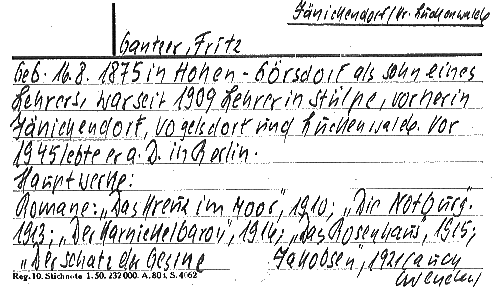 Jänichendorf/Kr. Luckenwalde
Gantzer, Fritz
Geb. 16.8. 1875 in Hohen-Görsdorf als Sohn eines
Lehrers, war seit 1909 Lehrer in Stülpe, vorher in
Jänichendorf, Vogelsdorf und Luckenwalde. Vor
1945 lebte er a.D. in Berlin.
Hauptwerke:
Romane: „Das Kreuz im Moor", 1910; „Die Notburg".
1913; „Der Karnickelbaron", 1914; „Das Rosenhaus", 1915;
„Der Schatz der Gesine Jakobsen", 1921 (auch
Reg. 10. Stichnote 1. 50. 232 000. A. 801. S. 4062